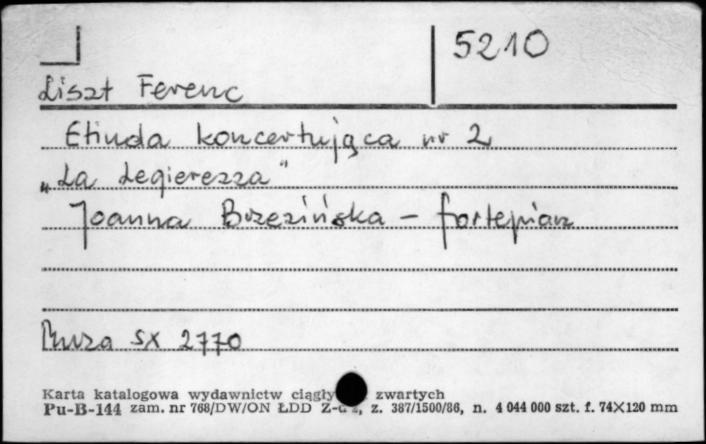 5210
Liszt Ferenc
Etiuda koncertująca nr 2
„La Legierezza"
Joanna Brzezińska – fortepian
Muza SX 2770
Karta katalogowa wydawnictw ciągły zwartych
Pu-B-144 zam. nr 768/DW/ON ŁDD z. 387/1500/86, n. 4 044 000 szt. f. 74×120 mm